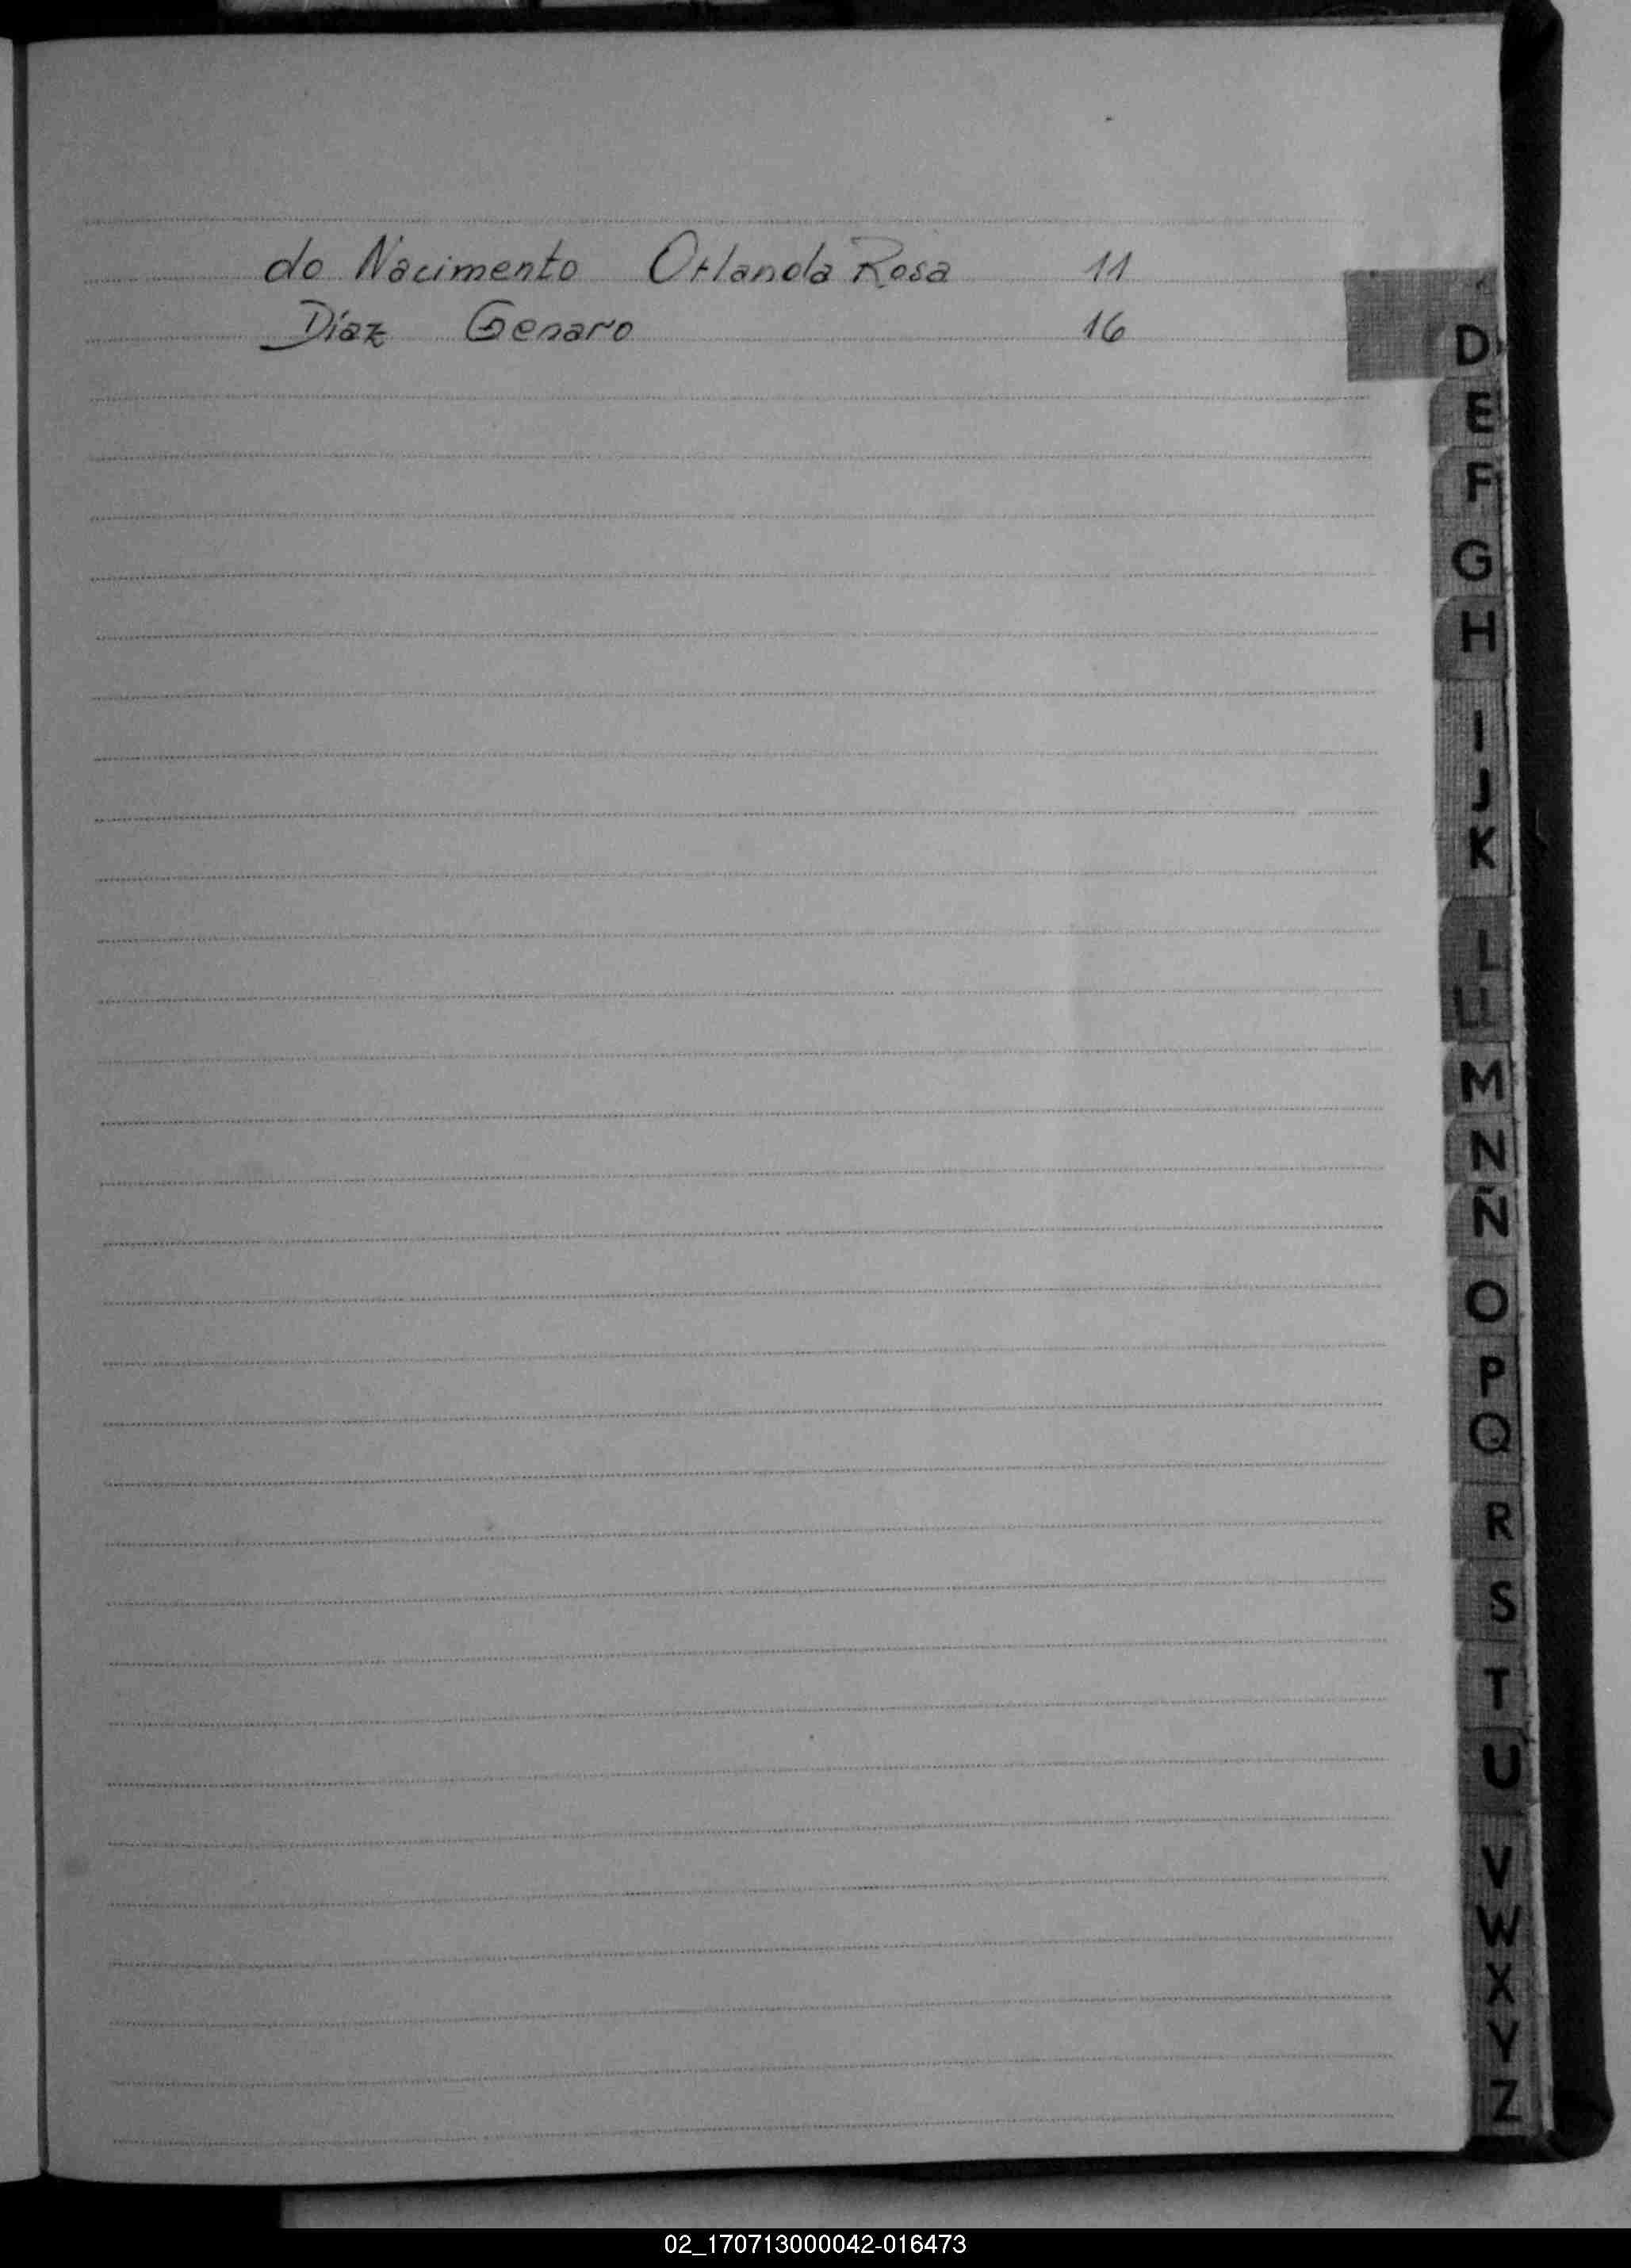 do Nacimento Orlanda Rosa 11
Díaz Genaro 16
D
E
F
G
H
I
J
K
L
LL
M
N
Ñ
O
P
Q
R
S
T
U
V
W
X
Y
Z
02_170713000042-016473